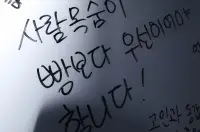 사람목숨이
빵보다 우선이어야
합니다!
고인과 동감